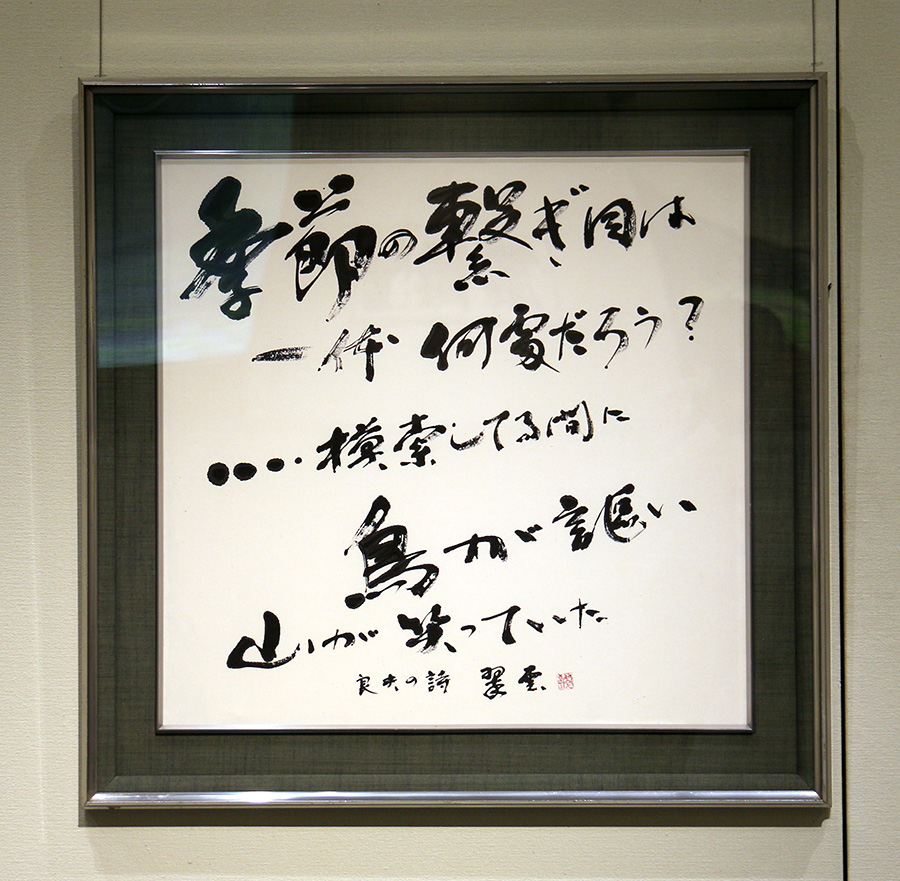 季節の繋ぎ目は
一体何処だろう?
・・・・模索してる間に
鳥が謳い
山が笑っていた
良夫の詩 翠雲